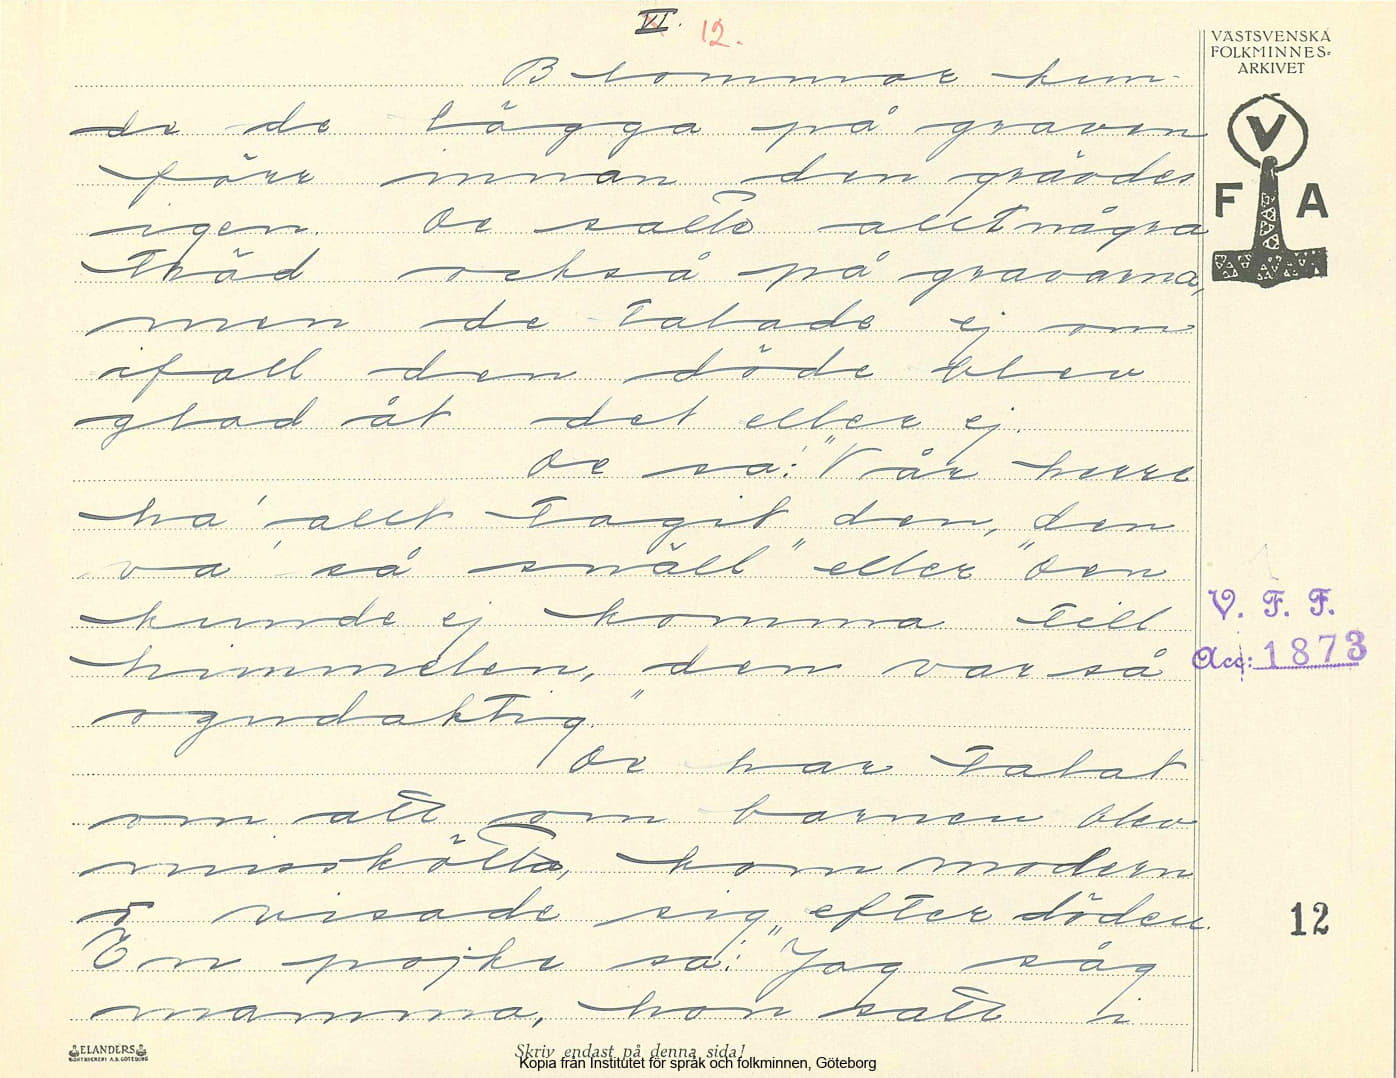 VI. 12.
VÄSTSVENSKA
FOLKMINNES-
ARKIVET
V
F A
Blommor kun-
de de lägga på graven
förr innan den grävdes
igen. De satte allt några
träd också på gravarna,
men de talade ej om
ifall den döde blev
glad åt det eller ej.
De sa: "Vår herre
ha' allt tagit den, den
va' så snäll" eller "Den
kunde ej komma till
himmelen, den var så
ogudaktig."
De har talat
om att om barnen blev
misskötta, kom modern
o visade sig efter döden.
En pojke sa: "Jag såg
mamma, hon satt i
V. F. F.
Acc: 1873
12
ELANDERS
BOKTRYCKERI A.B. GÖTEBORG
Skriv endast på denna sida!
Kopia från Institutet för språk och folkminnen, Göteborg